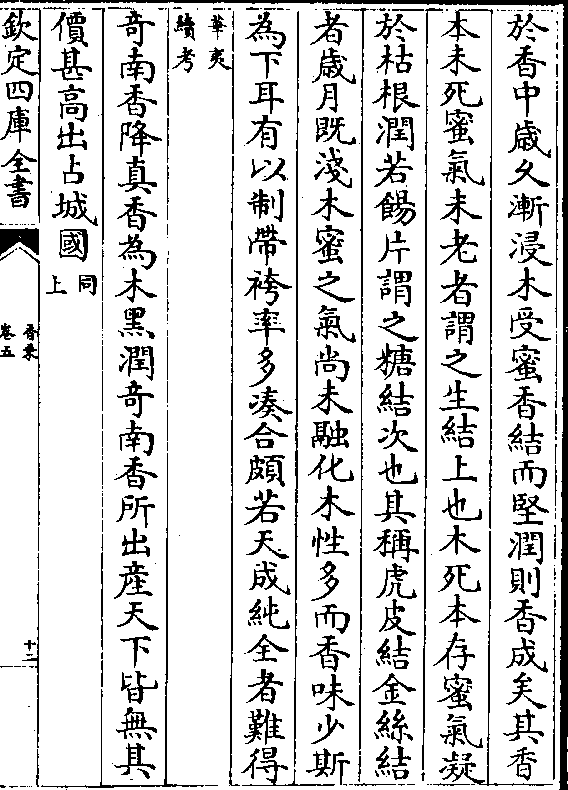 於香中歳久漸浸木受蜜香結而堅潤則香成矣其香
本未死蜜氣未老者謂之生結上也木死本存蜜氣凝
於枯根潤若餳片謂之糖結次也其稱虎皮結金絲結
者歳月既淺木蜜之氣尚未融化木性多而香味少斯
為下耳有以制帶袴率多凑合頗若天成純全者難得
華夷
續考
竒南香降真香為木黑潤竒南香所出産天下皆無其
價甚高出占城國同
上
欽定四庫全書
香乗
卷五
十二